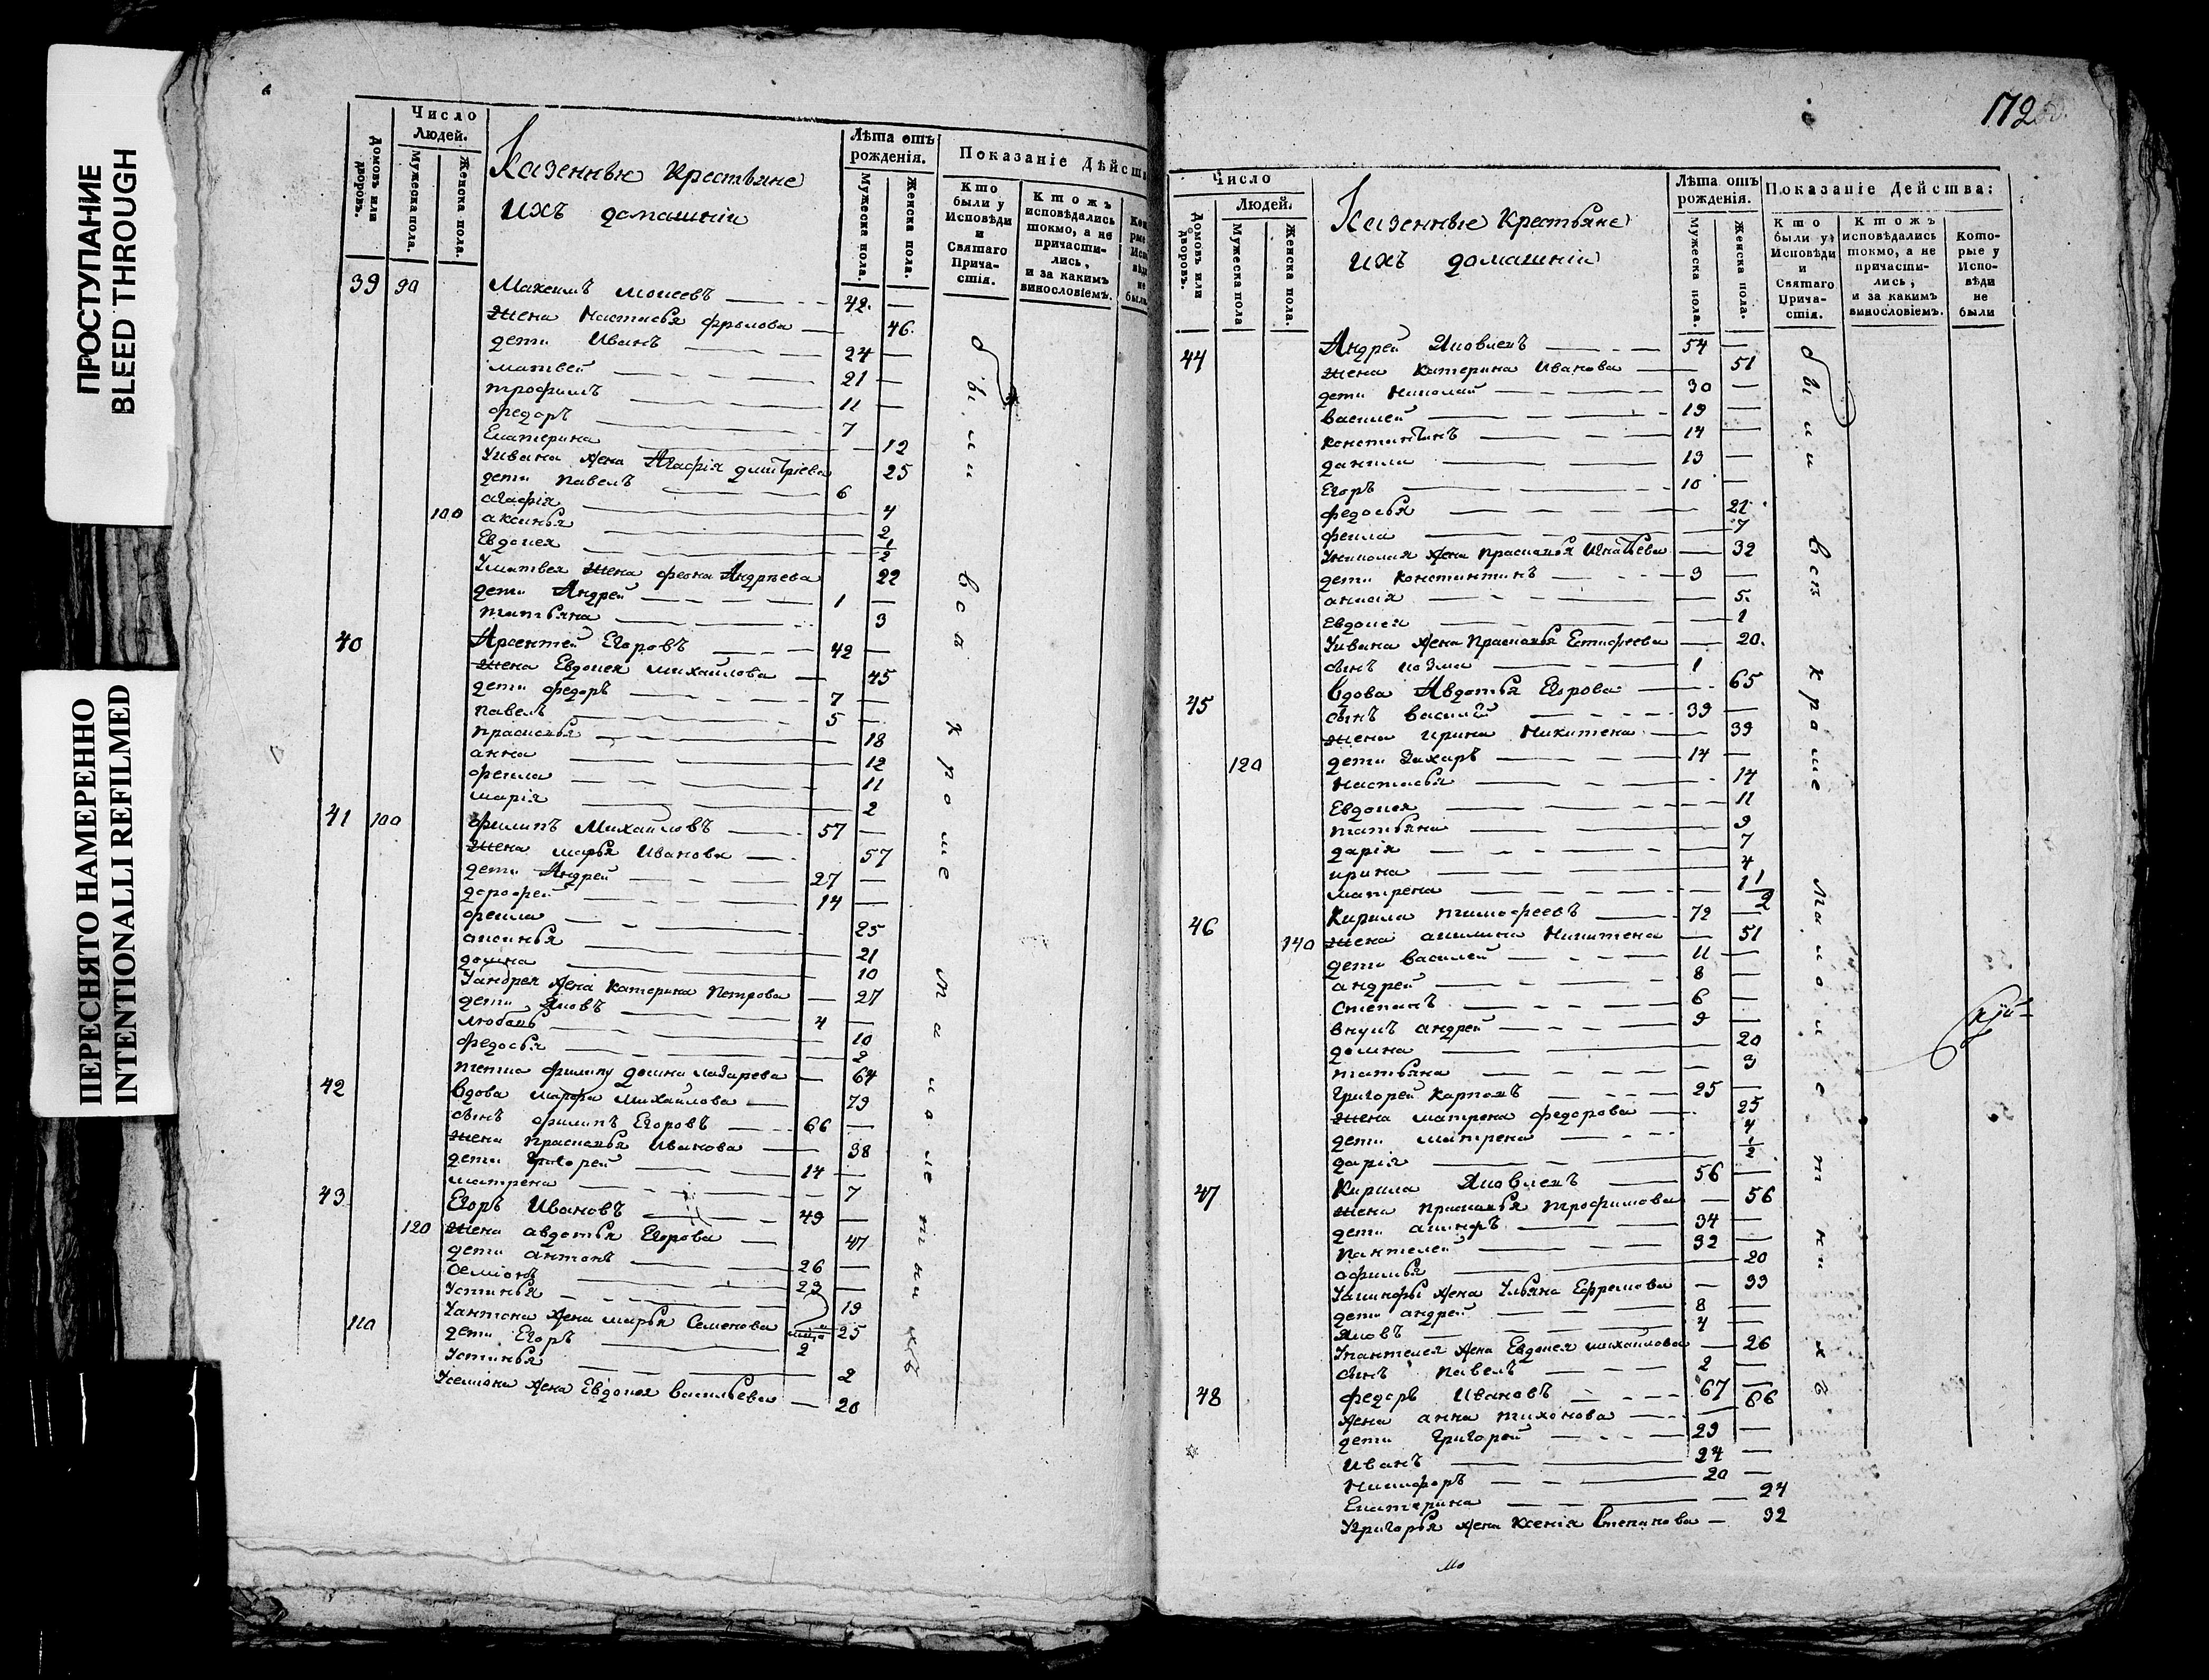 ПРОСТУПАНИЕ
BLEED THROUGH
ПЕРЕСНЯТО НАМЕРЕННО
INTENTIONALLI REFILMED
Число
Людей.
Домовъ или дворовъ.
Мужеска пола.
Женска пола.
Казенные Крестьяне
ихъ домашніи
Лѣта отъ рожденія.
Мужеска пола.
Женска пола.
Показаніе Дѣйств
Кто были у Исповѣди и Святаго Прича-стія.
Ктожъ исповѣдались токмо, а не причасти-лись, и за какимъ винословіемъ.
39 90 Максимъ Моисеевъ 42
жена Настасья Фролова 46
дети Иванъ 24
матвей 21
трофимъ 11
федоръ 7
Екатерина 12
Уивана жена Агафія дмитріева 25
дети павелъ 6
агафія 4
100 аксинья 2
Евдокея 1/2
Уматвея жена Андреева 22
дети Андрей 1
татьяна 3
40 Арсентей Егоровъ 42
жена Евдокея михайлова 45
дети федоръ 7
павелъ 5
прасковья 18
анна 12
фекла 11
марія 2
41 100 филипъ Михайловъ 57
жена марья Иванова 57
дети Андрей 27
дорофей 14
фекла 25
аксинья 21
домна 10
Уандрея жена катерина Петрова 27
дети Яковъ 4
любовь 10
федосья 2
теща филипу домна лазарева 64
42 вдова марфа михайлова 79
сынъ филипъ Егоровъ 66
жена прасковья Иванова 38
дети григорей 14
матрена 7
43 Егоръ Ивановъ 49
120 жена авдотья Егорова 47
дети антонъ 26
семіонъ 23
Устинья 19
110 Уантона жена марья Семенова 25
дети Егоръ 2
Устинья 2
Усемиона жена Евдокея васильева 20
были все кроме малолетныхъ
172
Число
Людей.
Домовъ или дворовъ.
Мужеска пола
Женска пола.
Казенные Крестьяне
ихъ домашніи
Лѣта отъ рожденія.
Мужеска пола.
Женска пола.
Показаніе Действа:
Кто были у Исповѣди и Святаго Прича-стія.
Ктожъ исповѣдались токмо, а не причасти-лись, и за какимъ винословіемъ.
Кото-рые у Испо-вѣди не были
44 Андрей Яковлевъ 54
жена катерина Иванова 51
дети николай 30
василей 19
константинъ 14
данила 13
Егоръ 10
федосья 21
фекла 7
Униколая жена прасковья Игнатьева 32
дети константинъ 3
анисія 5
Евдокея 1
Уивана жена прасковья 20
сынъ козма 1
45 вдова Авдотья Егорова 65
сынъ василей 39
жена ирина никитена 39
120 дети захаръ 14
настасья 14
Евдокея 11
татьяна 9
дарія 7
ирина 4
матрена 1 1/2
46 Кирила тимофеевъ 72
140 жена акилина никитена 51
дети василей 11
андрей 8
степанъ 6
внукъ андрей 9
домна 20
татьяна 3
григорей карповъ 25
жена матрена федорова 25
дети матрена 4
дарія 1/2
47 Кирила Яковлевъ 56
жена прасковья трофимова 56
дети 34
пантелей 32
афимья 20
жена Ульяна Ефремова 33
дети андрей 8
Яковъ 4
Упантелея жена Евдокея михайлова 26
сынъ павелъ 2
48 федоръ Ивановъ 67
жена анна тихонова 66
дети григорей 29
Иванъ 24
никифоръ 20
Екатерина 24
Угригорья жена ксенія Степанова 32
были все кроме малолетнихъ